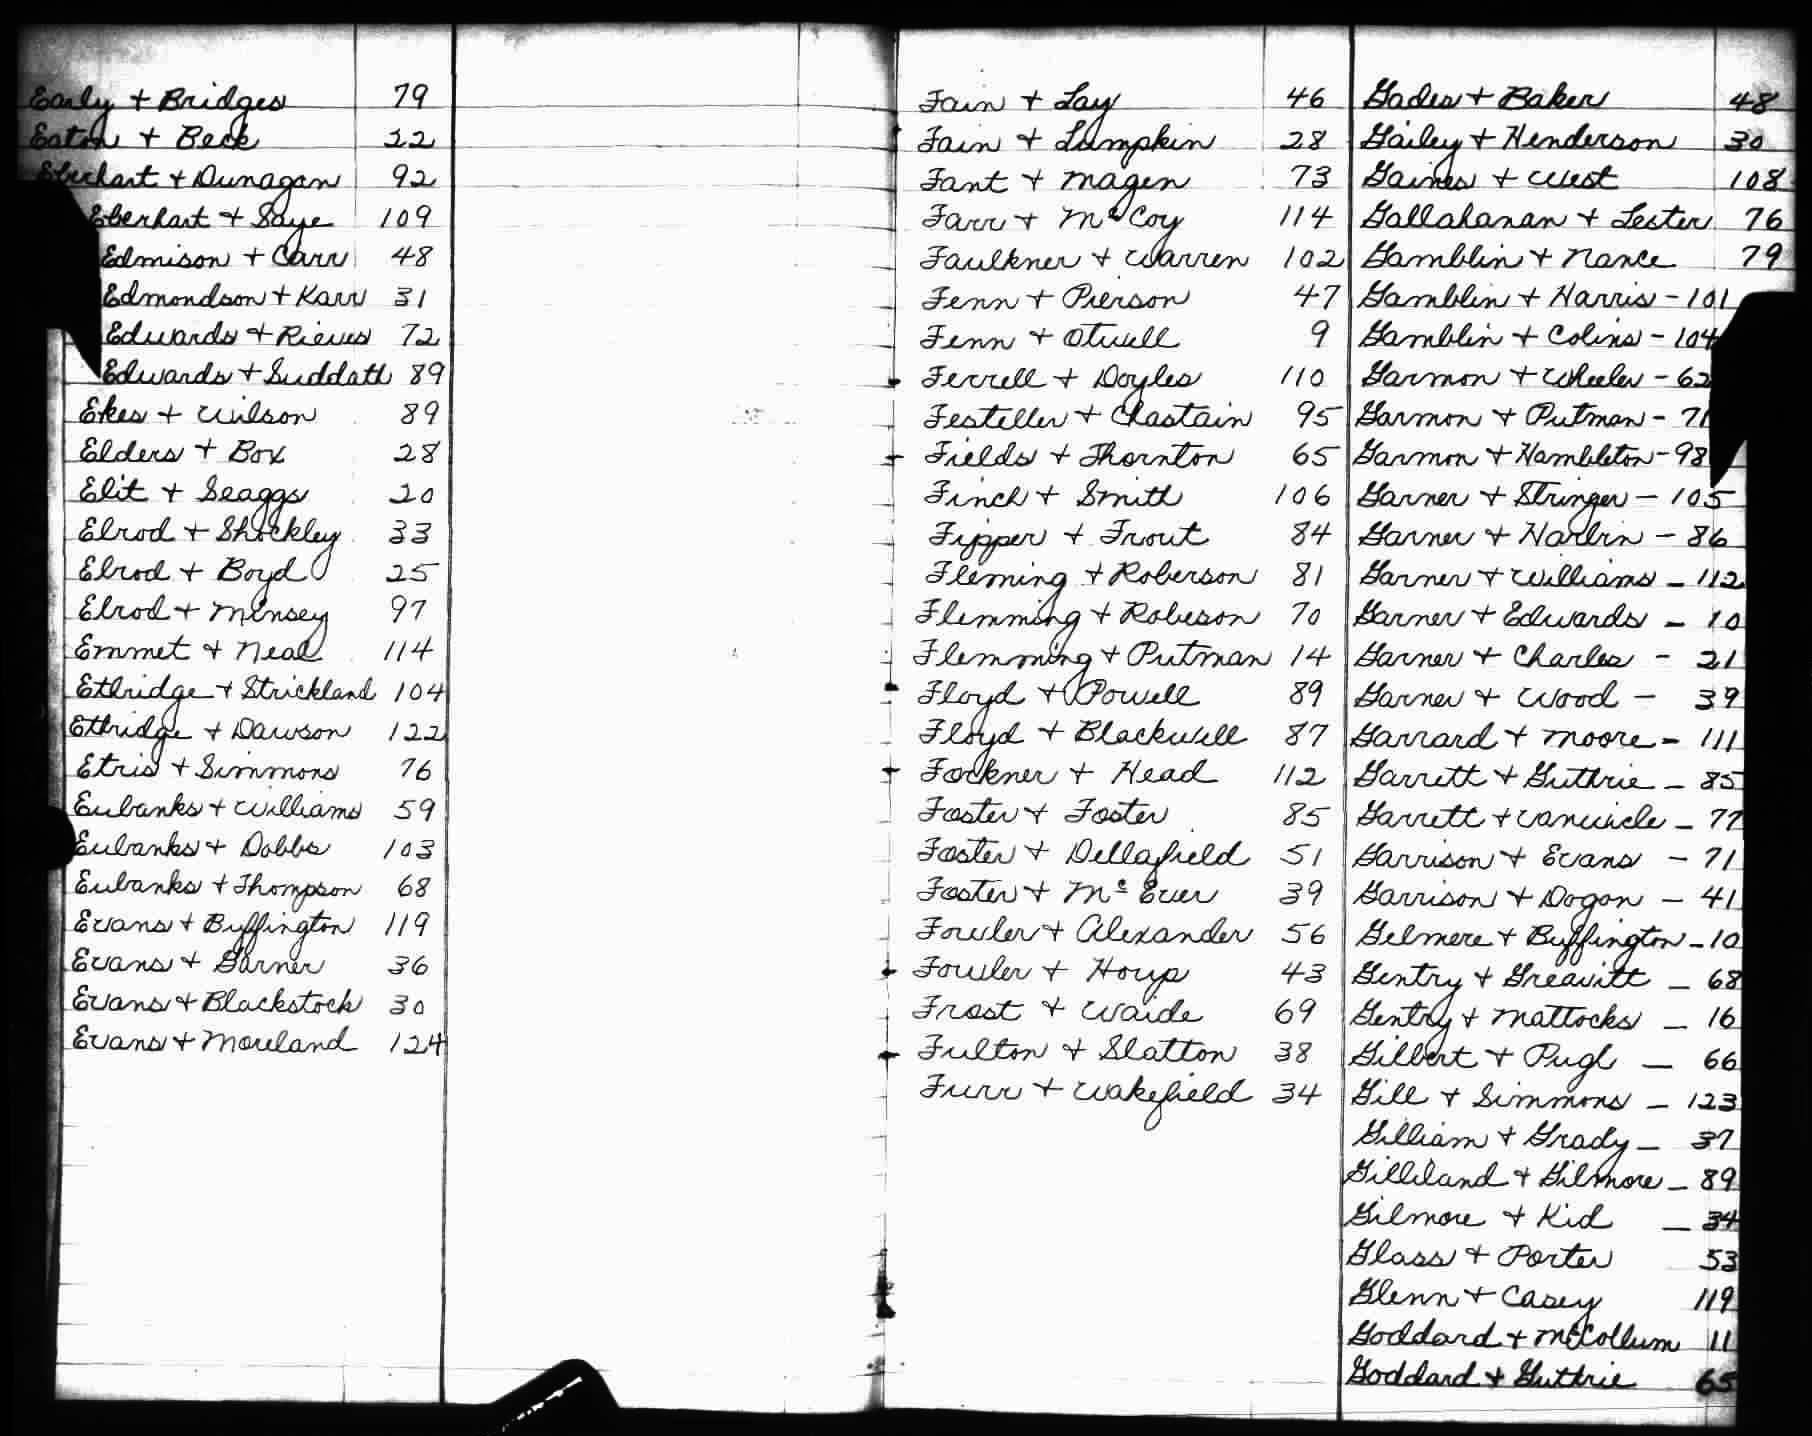 Early + Bridges 79
Eaton + Beck 22
Eberhart + Dunagan 92
Eberhart + Saye 109
Edmison + Carr 48
Edmondson + Karr 31
Edwards + Rieves 72
Edwards + Suddath 89
Ekes + Wilson 89
Elders + Box 28
Elit + Scaggs 20
Elrod + Shockley 33
Elrod + Boyd 25
Elrod + Minsey 97
Emmet + Neal 114
Ethridge + Strickland 104
Ethridge + Dawson 122
Etris + Simmons 76
Eubanks + Williams 59
Eubanks + Dobbs 103
Eubanks + Thompson 68
Evans + Buffington 119
Evans + Garner 36
Evans + Blackstock 30
Evans + Moreland 124
Fain + Lay 46
Fain + Lumpkin 28
Fant + Magen 73
Farr + McCoy 114
Faulkner + Warren 102
Fenn + Pierson 47
Fenn + Otwell 9
Ferrell + Doyles 110
Festeller + Chastain 95
Fields + Thornton 65
Finch + Smith 106
Fipper + Trout 84
Fleming + Roberson 81
Flemming + Robeson 70
Flemming + Putman 14
Floyd + Powell 89
Floyd + Blackwell 87
Fockner + Head 112
Foster + Foster 85
Foster + Dellafield 51
Foster + McEver 39
Fowler + Alexander 56
Fowler + Houp 43
Frost + Waide 69
Fulton + Slatton 38
Furr + Wakefield 34
Gades + Baker 48
Gailey + Henderson 30
Gaines + West 108
Gallahanan + Lester 76
Gamblin + Nance 79
Gamblin + Harris - 101
Gamblin + Colins - 104
Garmon + Wheeler - 62
Garmon + Putman - 71
Garmon + Hambleton - 98
Garner + Stringer - 105
Garner + Harbin - 86
Garner + Williams - 112
Garner + Edwards - 10
Garner + Charles - 21
Garner + Wood - 39
Garrard + Moore - 111
Garrett + Guthrie - 85
Garrett + Vanwicle - 77
Garrison + Evans - 71
Garrison + Dogan - 41
Gelmere + Buffington - 10
Gentry + Greavitt - 68
Gentry + Mattocks - 16
Gilbert + Pugh - 66
Gill + Simmons - 123
Gilliam + Grady - 37
Gilliland + Gilmore - 89
Gilmore + Kid - 34
Glass + Porter 53
Glenn + Casey 119
Goddard + McCollum 11
Goddard + Guthrie 65